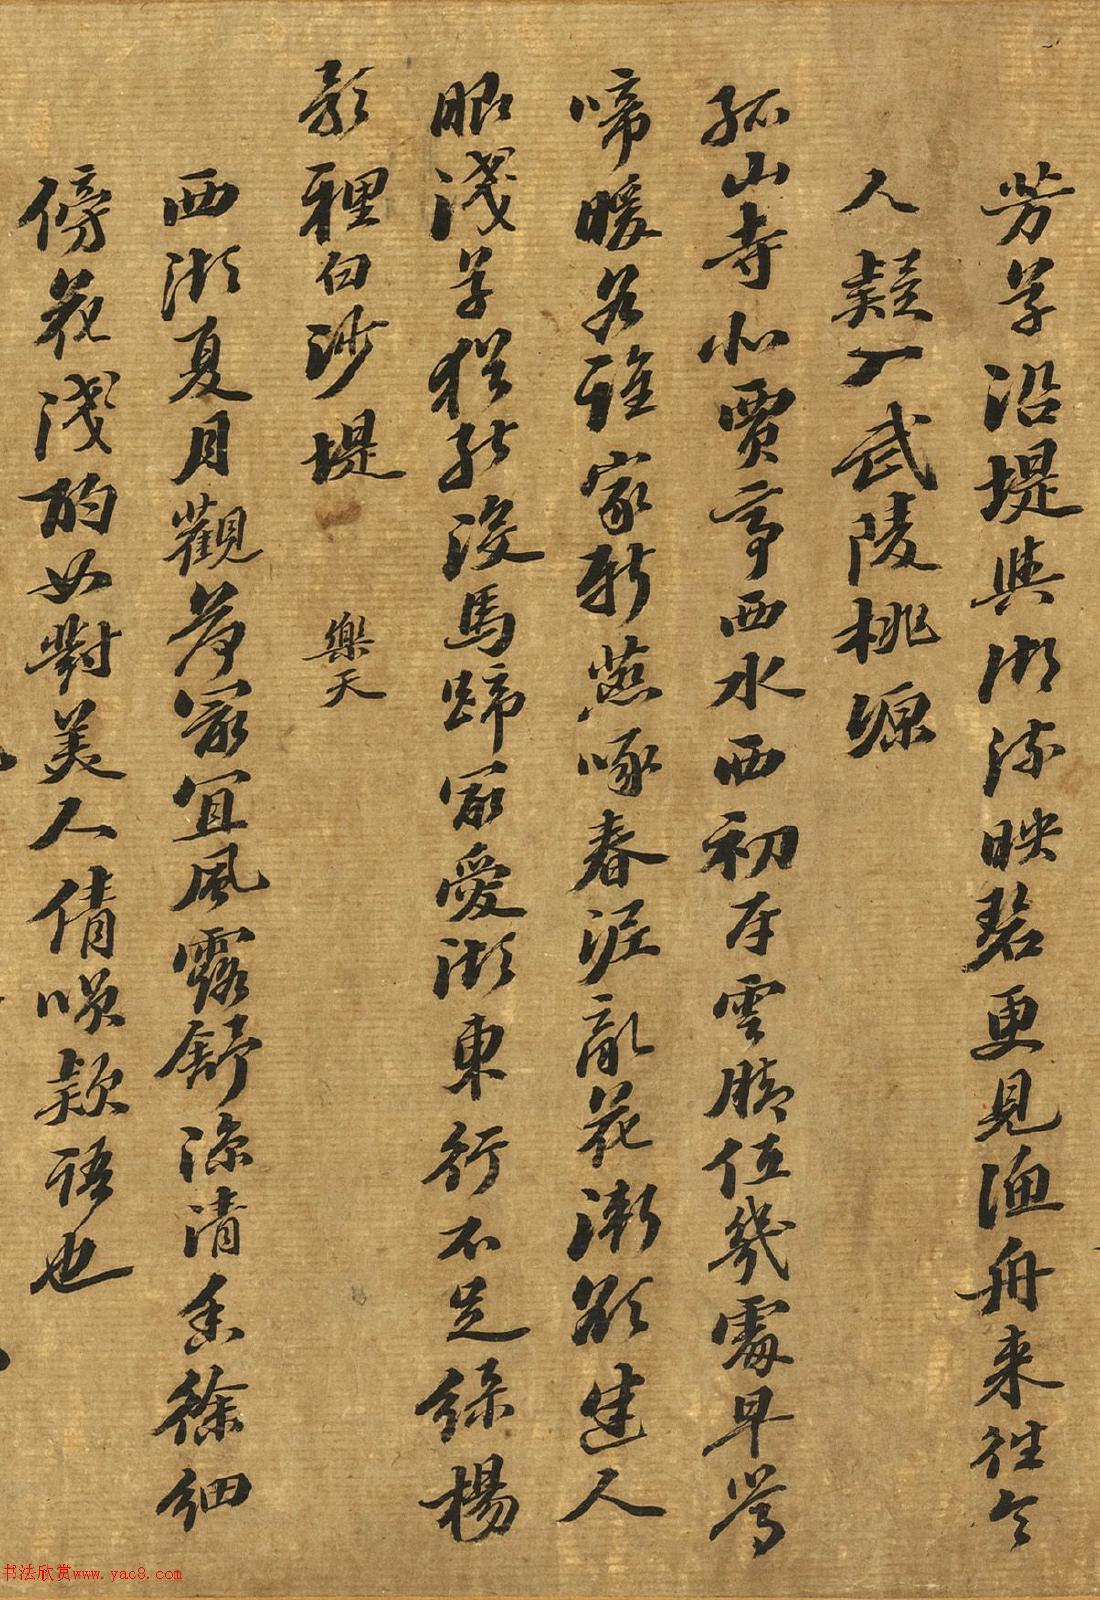 芳草沿堤與湖流映碧更見漁舟來往令
人疑入武陵桃源
孤山寺北賈亭西水西初平雲脚低幾處早鶯
啼暖名誰家新燕啄春泥亂花漸欲迷人
眼淺草猶能沒馬蹄寂愛湖東行不足綠楊
影裡白沙堤 樂天
西湖夏月觀荷寂宜風露舒涼清香徐細
傍花淺酌如對美人倩唤款語也
书法欣赏www.yac8.com